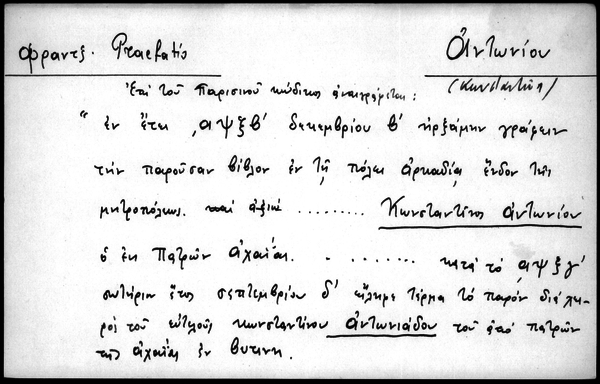 Φραντζ. Praefatio Ἀντωνίου
(Κωνσταντῖνος)
Ἐπὶ τοῦ Παρισινοῦ κώδικος ἀναγράφεται:
“ἐν ἔτει ,αψξβʹ δεκεμβρίου βʹ ἠρξάμην γράφειν
τὴν παροῦσαν βίβλον ἐν τῇ πόλει ἀρκαδίᾳ ἔνδον τῆς
μητροπόλεως. καὶ ......... Κωνσταντῖνος ἀντωνίου
ὁ ἐκ Πατρῶν ἀχαΐας. ........ κατὰ τὸ ,αψξγʹ
σωτήριον ἔτος σεπτεμβρίου δʹ εἴληφε τέρμα τὸ παρὸν διὰ χει-
ρὸς τοῦ εὐτελοῦς κωνσταντίνου ἀντωνιάδου τοῦ ἀπὸ πατρῶν
τῆς ἀχαΐας ἐν βυτίνῃ.